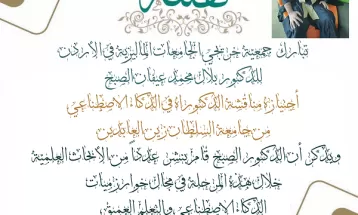 تبارك جمعية خريجي الجامعات الماليزية في الأردن
للدكتور بلال محمد عيفان الصبح
اجتيازه مناقشة الدكتوراه في الذكاء الاصطناعي
من جامعة السلطان زين العابدين
ويذكر أن الدكتور الصبح قام بنشر عدداً من الأبحاث العلمية
خلال هذه المرحلة في مجال خوارزميات
الذكاء الاصطناعي والتعلم العميق،